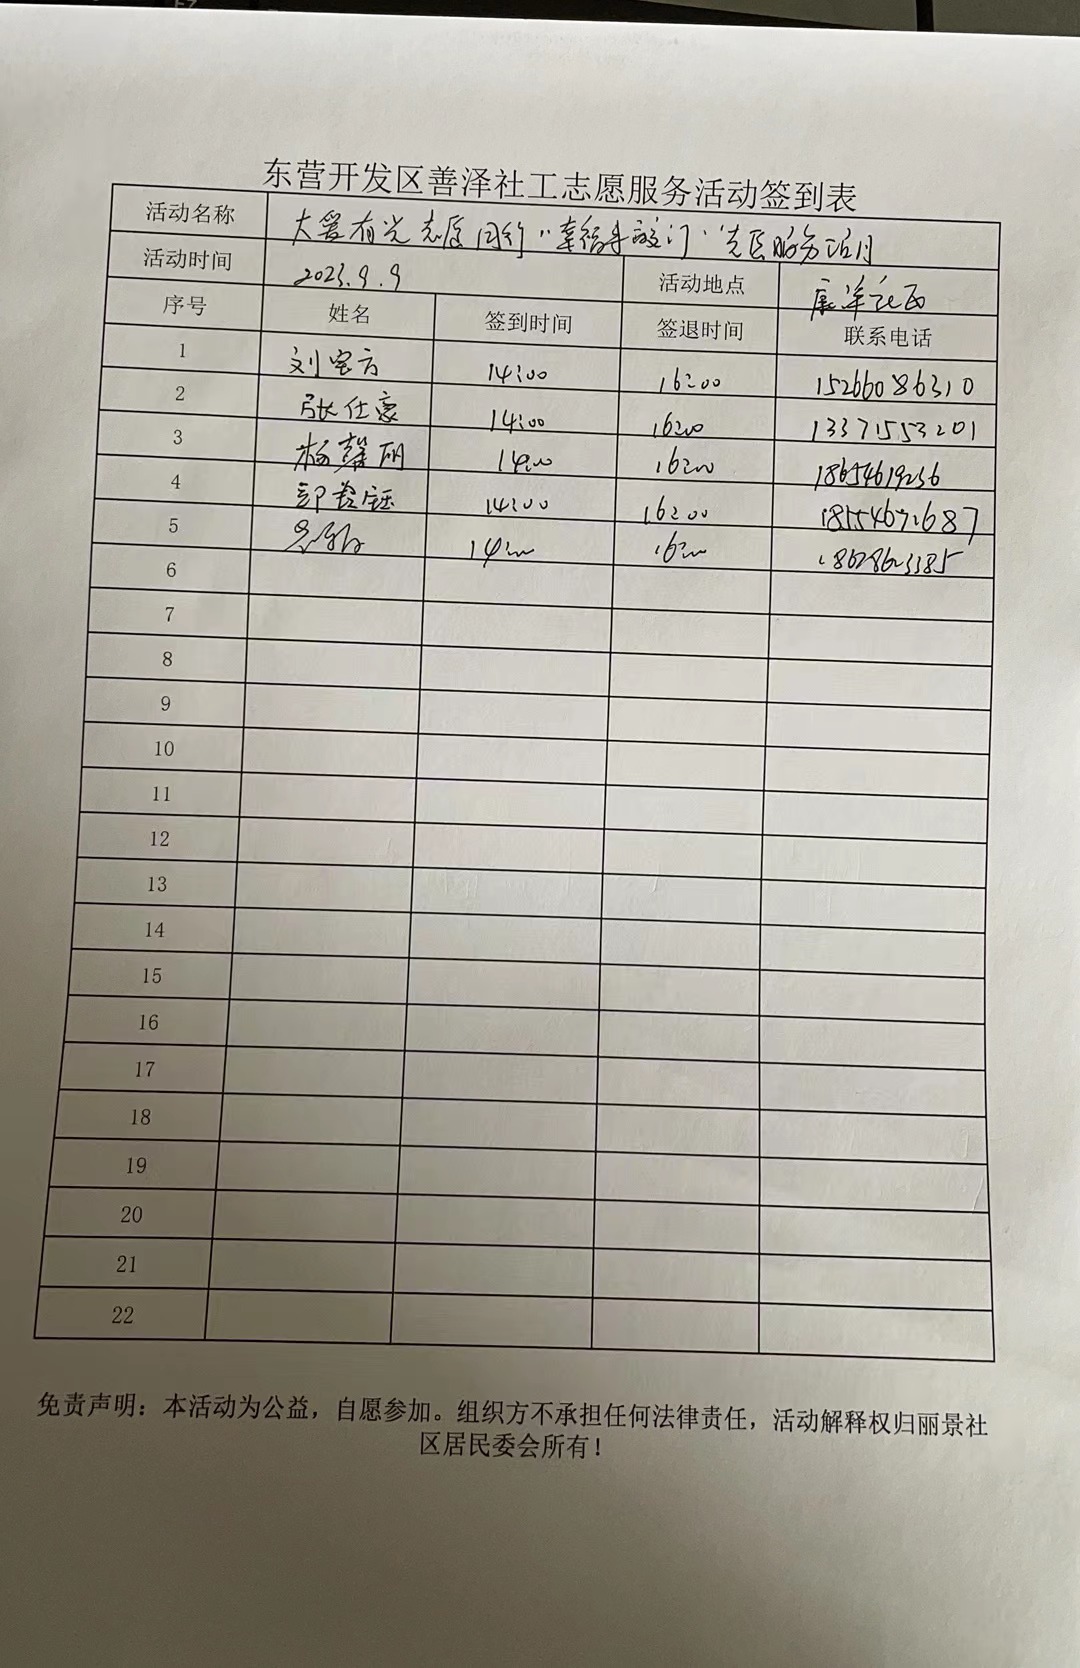 东营开发区善泽社工志愿服务活动签到表
活动名称 大爱有光 志愿同行 "幸福来敲门" 志愿服务活动
活动时间 2023.9.9 活动地点 康洋社区
序号 姓名 签到时间 签退时间 联系电话
1 刘宝方 14:00 16:00 15266086310
2 张仕豪 14:00 16:00 13371553201
3 杨馨丽 14:00 16:00 18654619236
4 14:00 16:00
5 14:00 16:00
6
7
8
9
10
11
12
13
14
15
16
17
18
19
20
21
22
免责声明：本活动为公益，自愿参加。组织方不承担任何法律责任，活动解释权归丽景社
区居民委会所有！